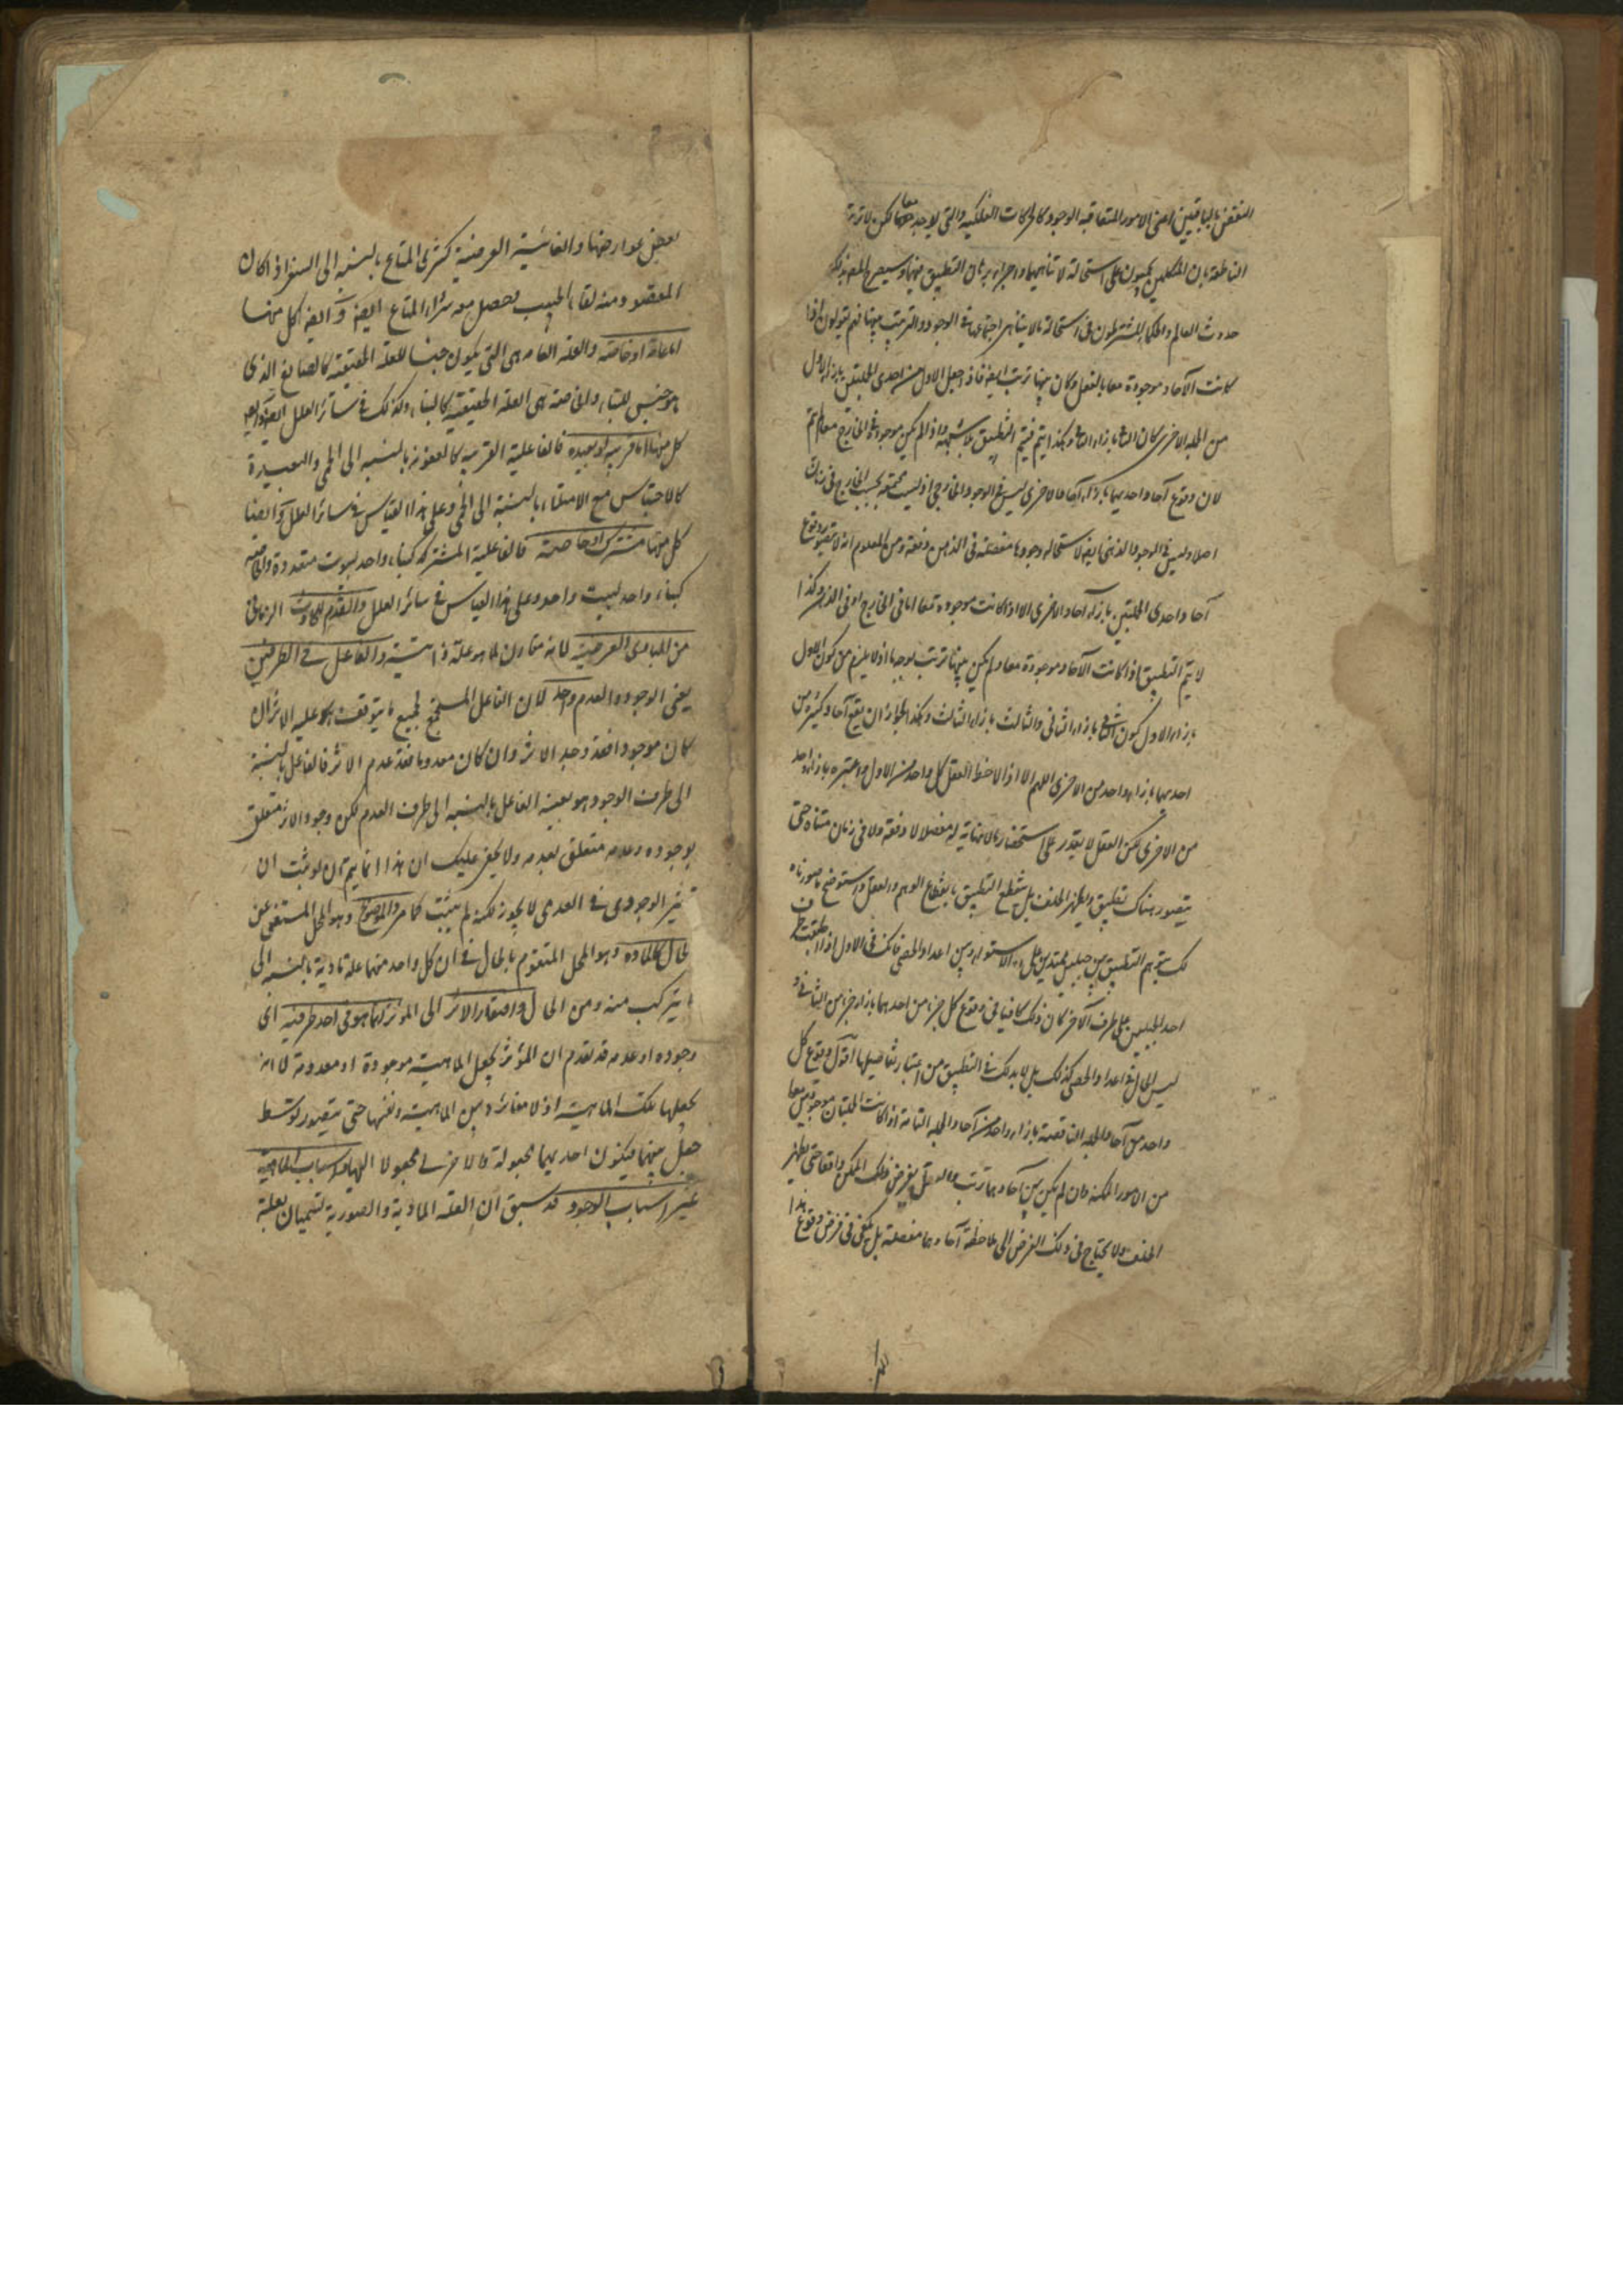 النقض بالباقيين اعنى الامور المتعاقبة الوجود كالحركات الفلكية والتى لا يوجد معا لكن لا ترتب
الناطقة بان المتكلمين يحكمون على استحالة لا تناهيهما واجراء برهان التطبيق فيهما وسيصرح المصنف بذلك
حدوث العالم والحكماء يشترطون فى استحالة ما لا يتناهى اجتماعها فى الوجود والترتيب بينها فهم يقولون اذا
كانت الآحاد موجودة معا بالفعل وكان بينها ترتب ايضا فاذا جعل الاول من احدى الجملتين بازاء الاول
من الجملة الاخرى كان الثانى بازاء الثانى وهكذا فيتم التطبيق بلا شبهة واذا لم يكن موجودة فى الخارج معا لم يتم
لان وقوع آحاد احديهما بازاء آحاد الاخرى ليس فى الوجود الخارجى اذ ليست مجتمعة بحسب الخارج فى زمان
اصلا وليس فى الوجود الذهنى ايضا لاستحالة وجودها مفصلة فى الذهن دفعة ومن المعلوم انه لا يتصور وقوع
آحاد احدى الجملتين بازاء آحاد الاخرى الا اذا كانت موجودة معا اما فى الخارج او فى الذهن وكذا
لا يتم التطبيق اذا كانت الآحاد موجودة معا ولم يكن بينها ترتب بوجه ما اذ لا يلزم من كون الاول
بازاء الاول كون الثانى بازاء الثانى والثالث بازاء الثالث وهكذا لجواز ان يقع آحاد كثيرة من
احديهما بازاء واحد من الاخرى اللهم الا اذا لاحظ العقل كل واحد من الاول واعتبره بازاء واحد
من الاخرى لكن العقل لا يقدر على استحضار ما لا نهاية له مفصلا لا دفعة ولا فى زمان متناه حتى
يتصور هناك تطبيق ويظهر الخلف بل ينقطع التطبيق بانقطاع الوهم والعقل واستوضح ما صورناه
لك بتوهم التطبيق بين جبلين ممتدين على الاستواء وبين اعداد الحصى فانك فى الاول اذا طبقت طرف
احد الجبلين على طرف الآخر كان ذلك كافيا فى وقوع كل جزء من احدهما بازاء جزء من الثانى و
ليس الحال فى اعداد الحصى كذلك بل لا بد لك فى التطبيق من اعتبار تفاصيلها اقول وقوع كل
واحد من آحاد الجملة الناقصة بازاء واحد من آحاد الجملة التامة اذا كانت الجملتان موجودتين معا
من الامور الممكنة وان لم يكن بين آحادهما ترتب والعقل يفرض ذلك الممكن واقعا حتى يظهر
الخلف ولا يحتاج فى ذلك الفرض الى ملاحظة آحادها مفصلة بل يكفى فى فرض وقوع هذا
بعض عوارضها والغائية العرضية كشرى المتاع بالنسبة الى السفر اذا كان
المقصود منه لقاء الحبيب يحصل معه شراء المتاع ايضا وايضا كل منها
اما عامة او خاصة والعلة العامة هى التى يكون جنسا للعلة الحقيقية كالصانع الذى
هو جنس للبناء والخاصة هى العلة الحقيقية كالبناء وكذلك فى سائر العلل وايضا
كل منها اما قريبة او بعيدة فالفاعلية القريبة كالعفونة بالنسبة الى الحمى والبعيدة
كالاحتباس مع الامتلاء بالنسبة الى الحمى وعلى هذا القياس فى سائر العلل وايضا
كل منها مشتركة او خاصة فالفاعلية المشتركة كبناء واحد لبيوت متعددة والخاصة
كبناء واحد لبيت واحد وعلى هذا القياس فى سائر العلل والعدم للحادث الزمانى
من المبادى العرضية لانه مقارن لما هو علة ذاتية والفاعل فى الطرفين
يعنى الوجود والعدم واحد لان الفاعل المستجمع لجميع ما يتوقف عليه الاثر ان
كان موجودا فقد وجد الاثر وان كان معدوما فقد عدم الاثر فالفاعل بالنسبة
الى طرف الوجود هو بعينه الفاعل بالنسبة الى طرف العدم لكن وجود الاثر متعلق
بوجوده وعدمه متعلق بعدمه ولا يخفى عليك ان هذا انما يتم ان لو ثبت ان
تاثير الوجودى فى العدمى لا يجوز لكنه لم يثبت كما مر والموضوع وهو المحل المستغنى عن
الحال كالمادة وهو المحل المتقوم بالحال فى ان كل واحد منهما علة مادية بالنسبة الى
ما يتركب منه ومن الحال وافتقار الاثر الى المؤثر انما هو فى احد طرفيه اى
وجوده او عدمه قد تقدم ان المؤثر يجعل الماهية موجودة او معدومة لا انه
يجعلها تلك الماهية اذ لا مغائرة بين الماهية ونفسها حتى يتصور توسط
جعل بينهما فيكون احديهما مجعولة والاخرى مجعولا اليها واسباب الماهية
غير اسباب الوجود قد سبق ان العلة المادية والصورية تسميان بعلة